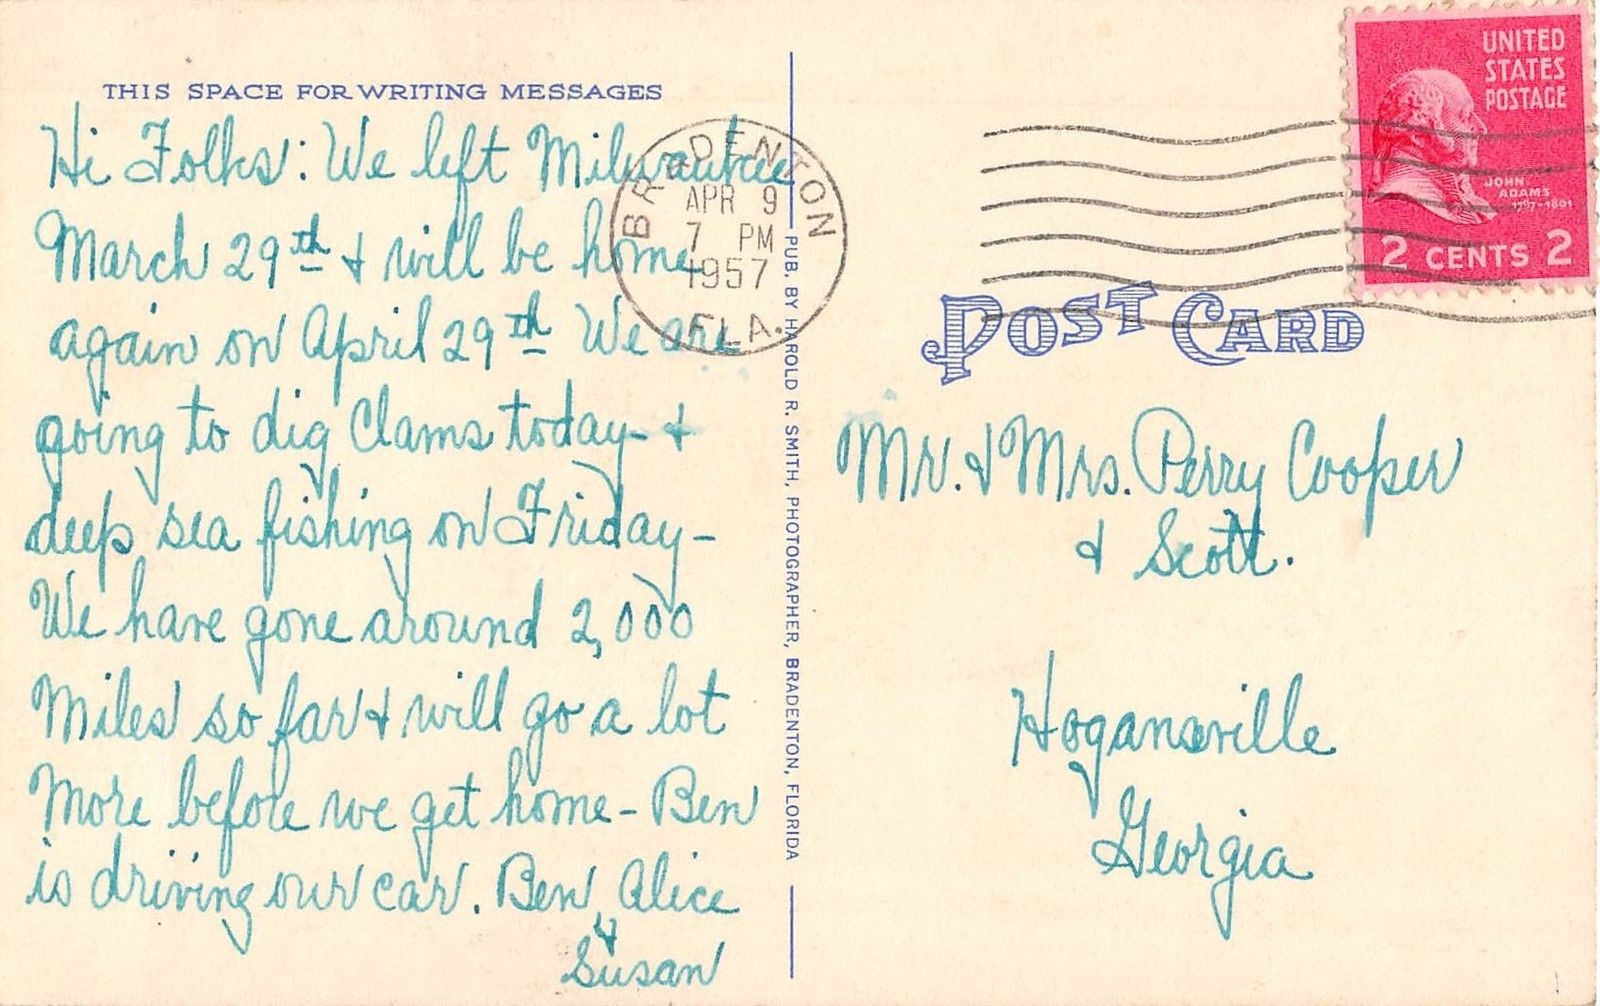 THIS SPACE FOR WRITING MESSAGES
Hi Folks: We left Milwaukee
March 29th & will be home
again on April 29th We are
going to dig Clams today- &
deep sea fishing on Friday-
We have gone around 2,000
Miles so far & will go a lot
More before we get home- Ben
is driving our car. Ben, Alice
&
Susan
BRADENTON
APR 9
7 PM
1957
FLA.
PUB. BY HAROLD R. SMITH, PHOTOGRAPHER, BRADENTON, FLORIDA
UNITED
STATES
POSTAGE
JOHN
ADAMS
1797-1801
2 CENTS 2
POST CARD
Mr. & Mrs. Perry Cooper
& Scott.
Hogansville
Georgia